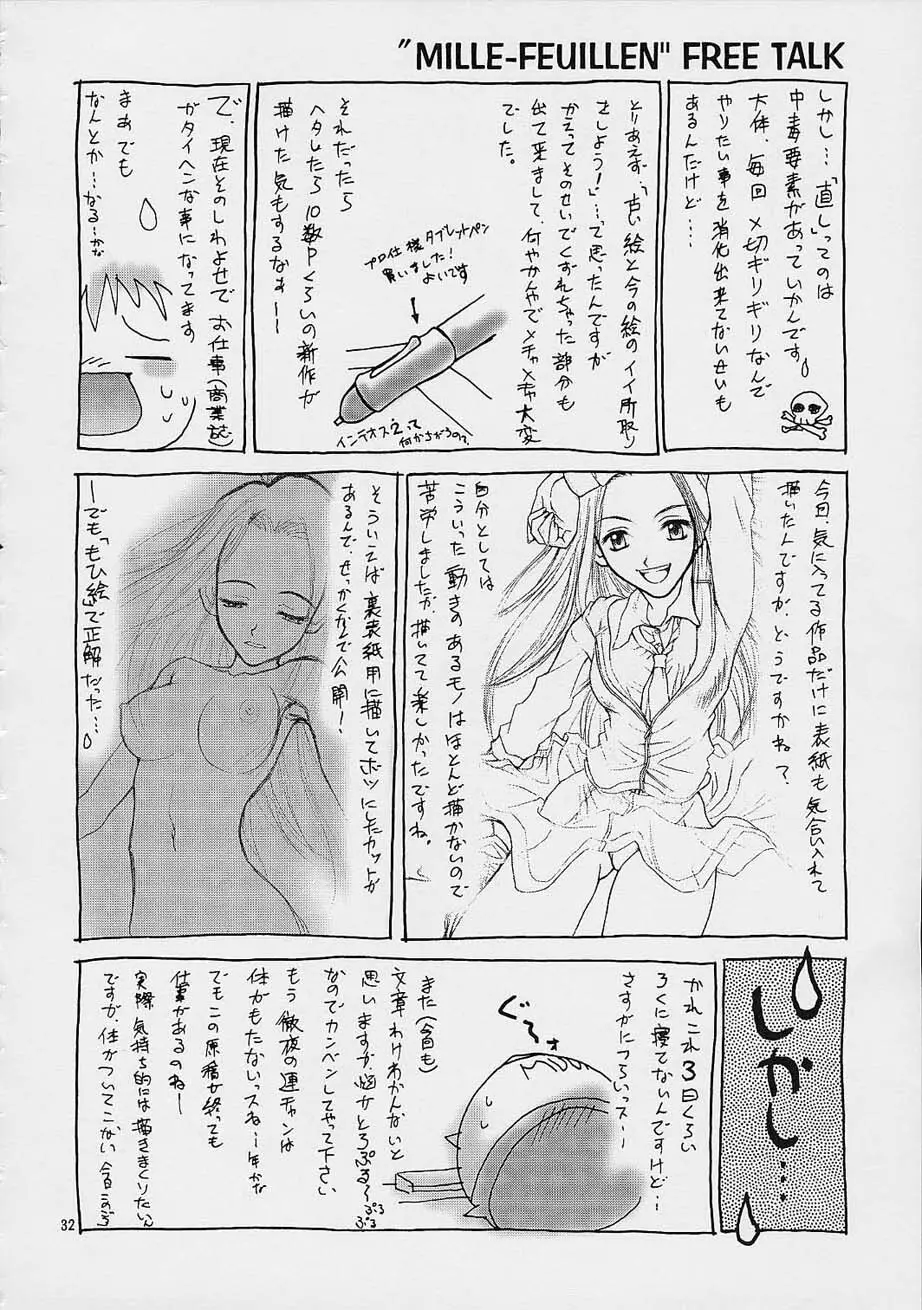 "MILLE-FEUILLEN" FREE TALK
しかし…「直し」ってのは
中毒要素があっていかんです。
大体、毎回〆切ギリギリなんで
やりたい事を消化出来てないせいも
あるんだけど…
とりあえず、「古い絵と今の絵のイイ所取り
さしよう!」…って思ったんですが
かえってそのせいでくずれちゃった部分も
出て来まして、何やかんやでメチャメチャ大変
でした。
プロ仕様タブレットペン
買いました!
よいです
インテオス2って
何かさがうので、
それだったら
ヘタしたら10数Pくらいの新作が
描けた気もするなぁーー
で、現在そのしわよせでお仕事(商業誌)
がタイヘンな事になってます
まあでも
なんとか…なる…かな
今回、気に入ってる作品だけに表紙も気合い入れて
描いたんですが、どうですかね?
自分としては
こういった動きのあるモノはほとんど描かないので
苦労しましたが、描いてて楽しかったですね。
そういえば裏表紙用に描いてボツにしたカットが
あるんで、せっかくなので公開!
ーでも「もひ絵」で正解だった…。
しかし…
かれこれ3日くらい
ろくに寝てないんですけど…
さすがにつらいっスー
ぐぅ
また(今回も)
文章わけわかんないと
思いますが、脳がとろぷる〜ぷるぷる
なのでカンベンしてやって下さい
もう徹夜の連チャンは
体がもたないっスねー年かな
でもこの原稿が終っても
仕事があるのねー
実際気持ち的には描ききりたいん
ですが、体がついてこない今日このごろ
32